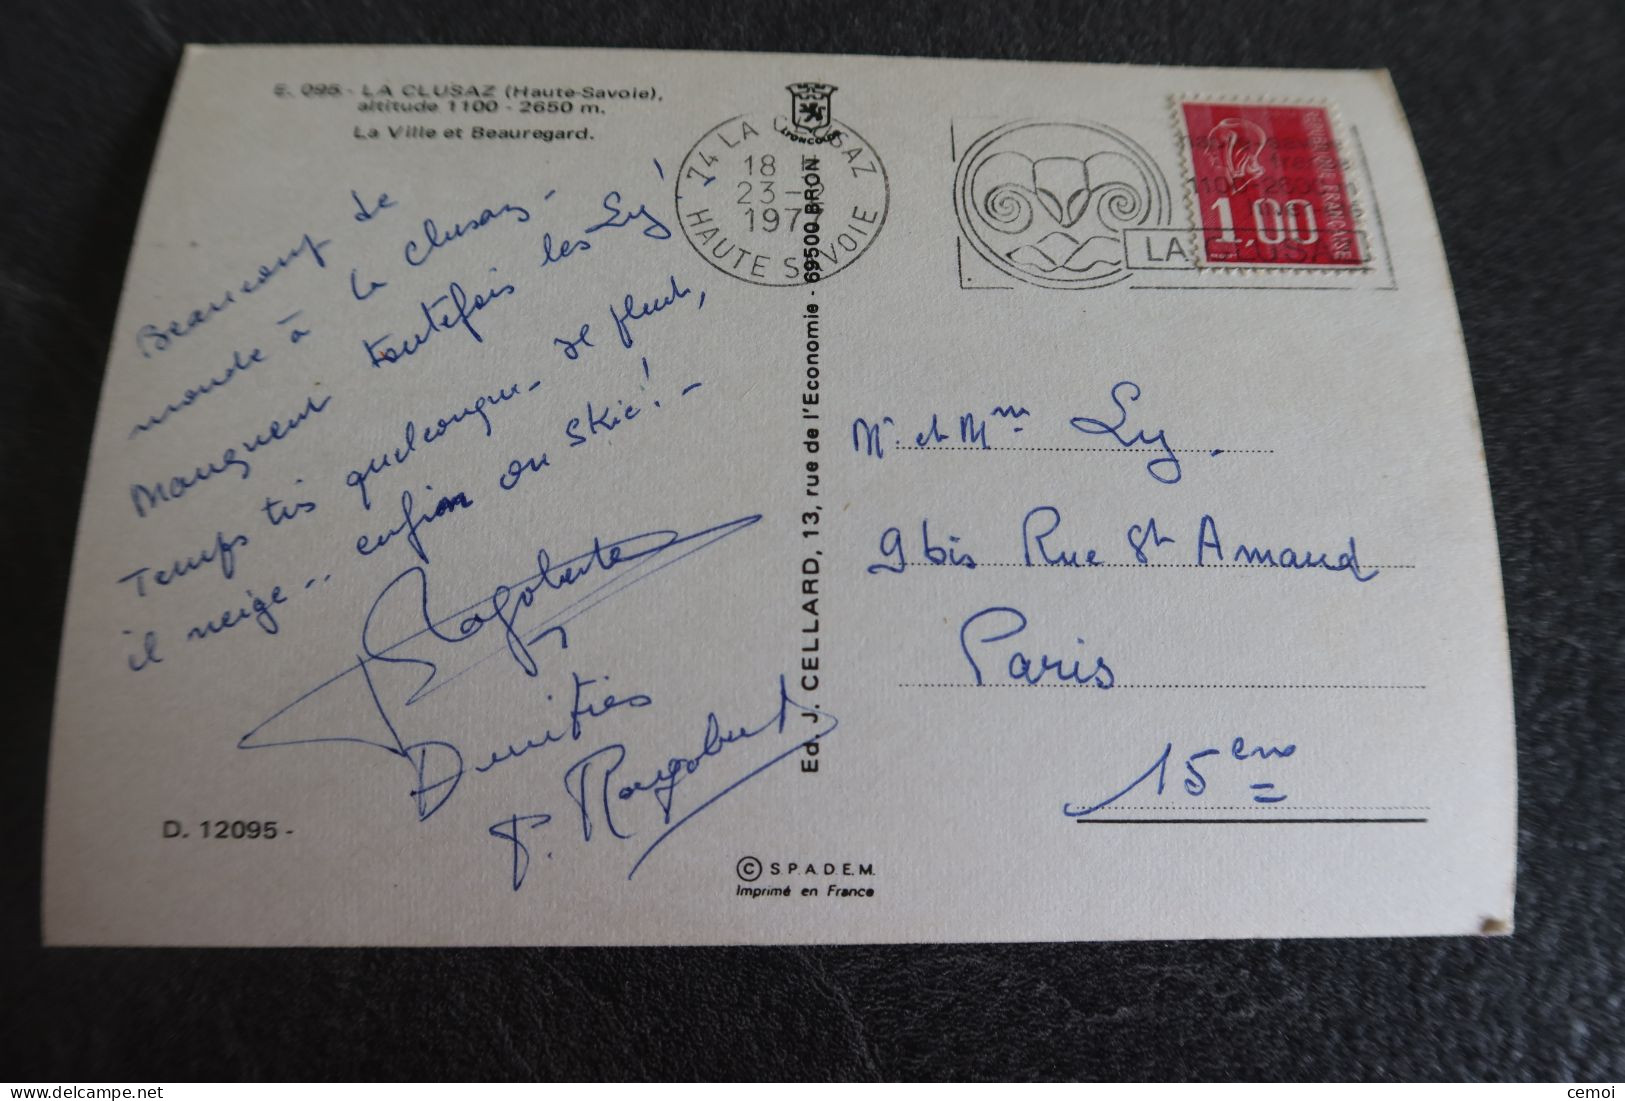 E. 095 - LA CLUSAZ (Haute-Savoie),
altitude 1100 - 2650 m.
La Ville et Beauregard.
Beaucoup de
monde à la Clusaz -
Manquent toutefois les Ly !
Temps très quelconque - il pleut,
il neige .. enfin on skie ! -
Amitiés
P. Ragobert
D. 12095 -
Ed. J. CELLARD, 13, rue de l'Economie - 69500 BRON
© S.P.A.D.E.M.
Imprimé en France
74 LA CLUSAZ
18 H
23 - 2
197
HAUTE SAVOIE
LA CLUSAZ
1100-2600
REPUBLIQUE FRANÇAISE
1,00
Mr et Mme Ly.
9 bis Rue St Amand
Paris
15eme
cemoi